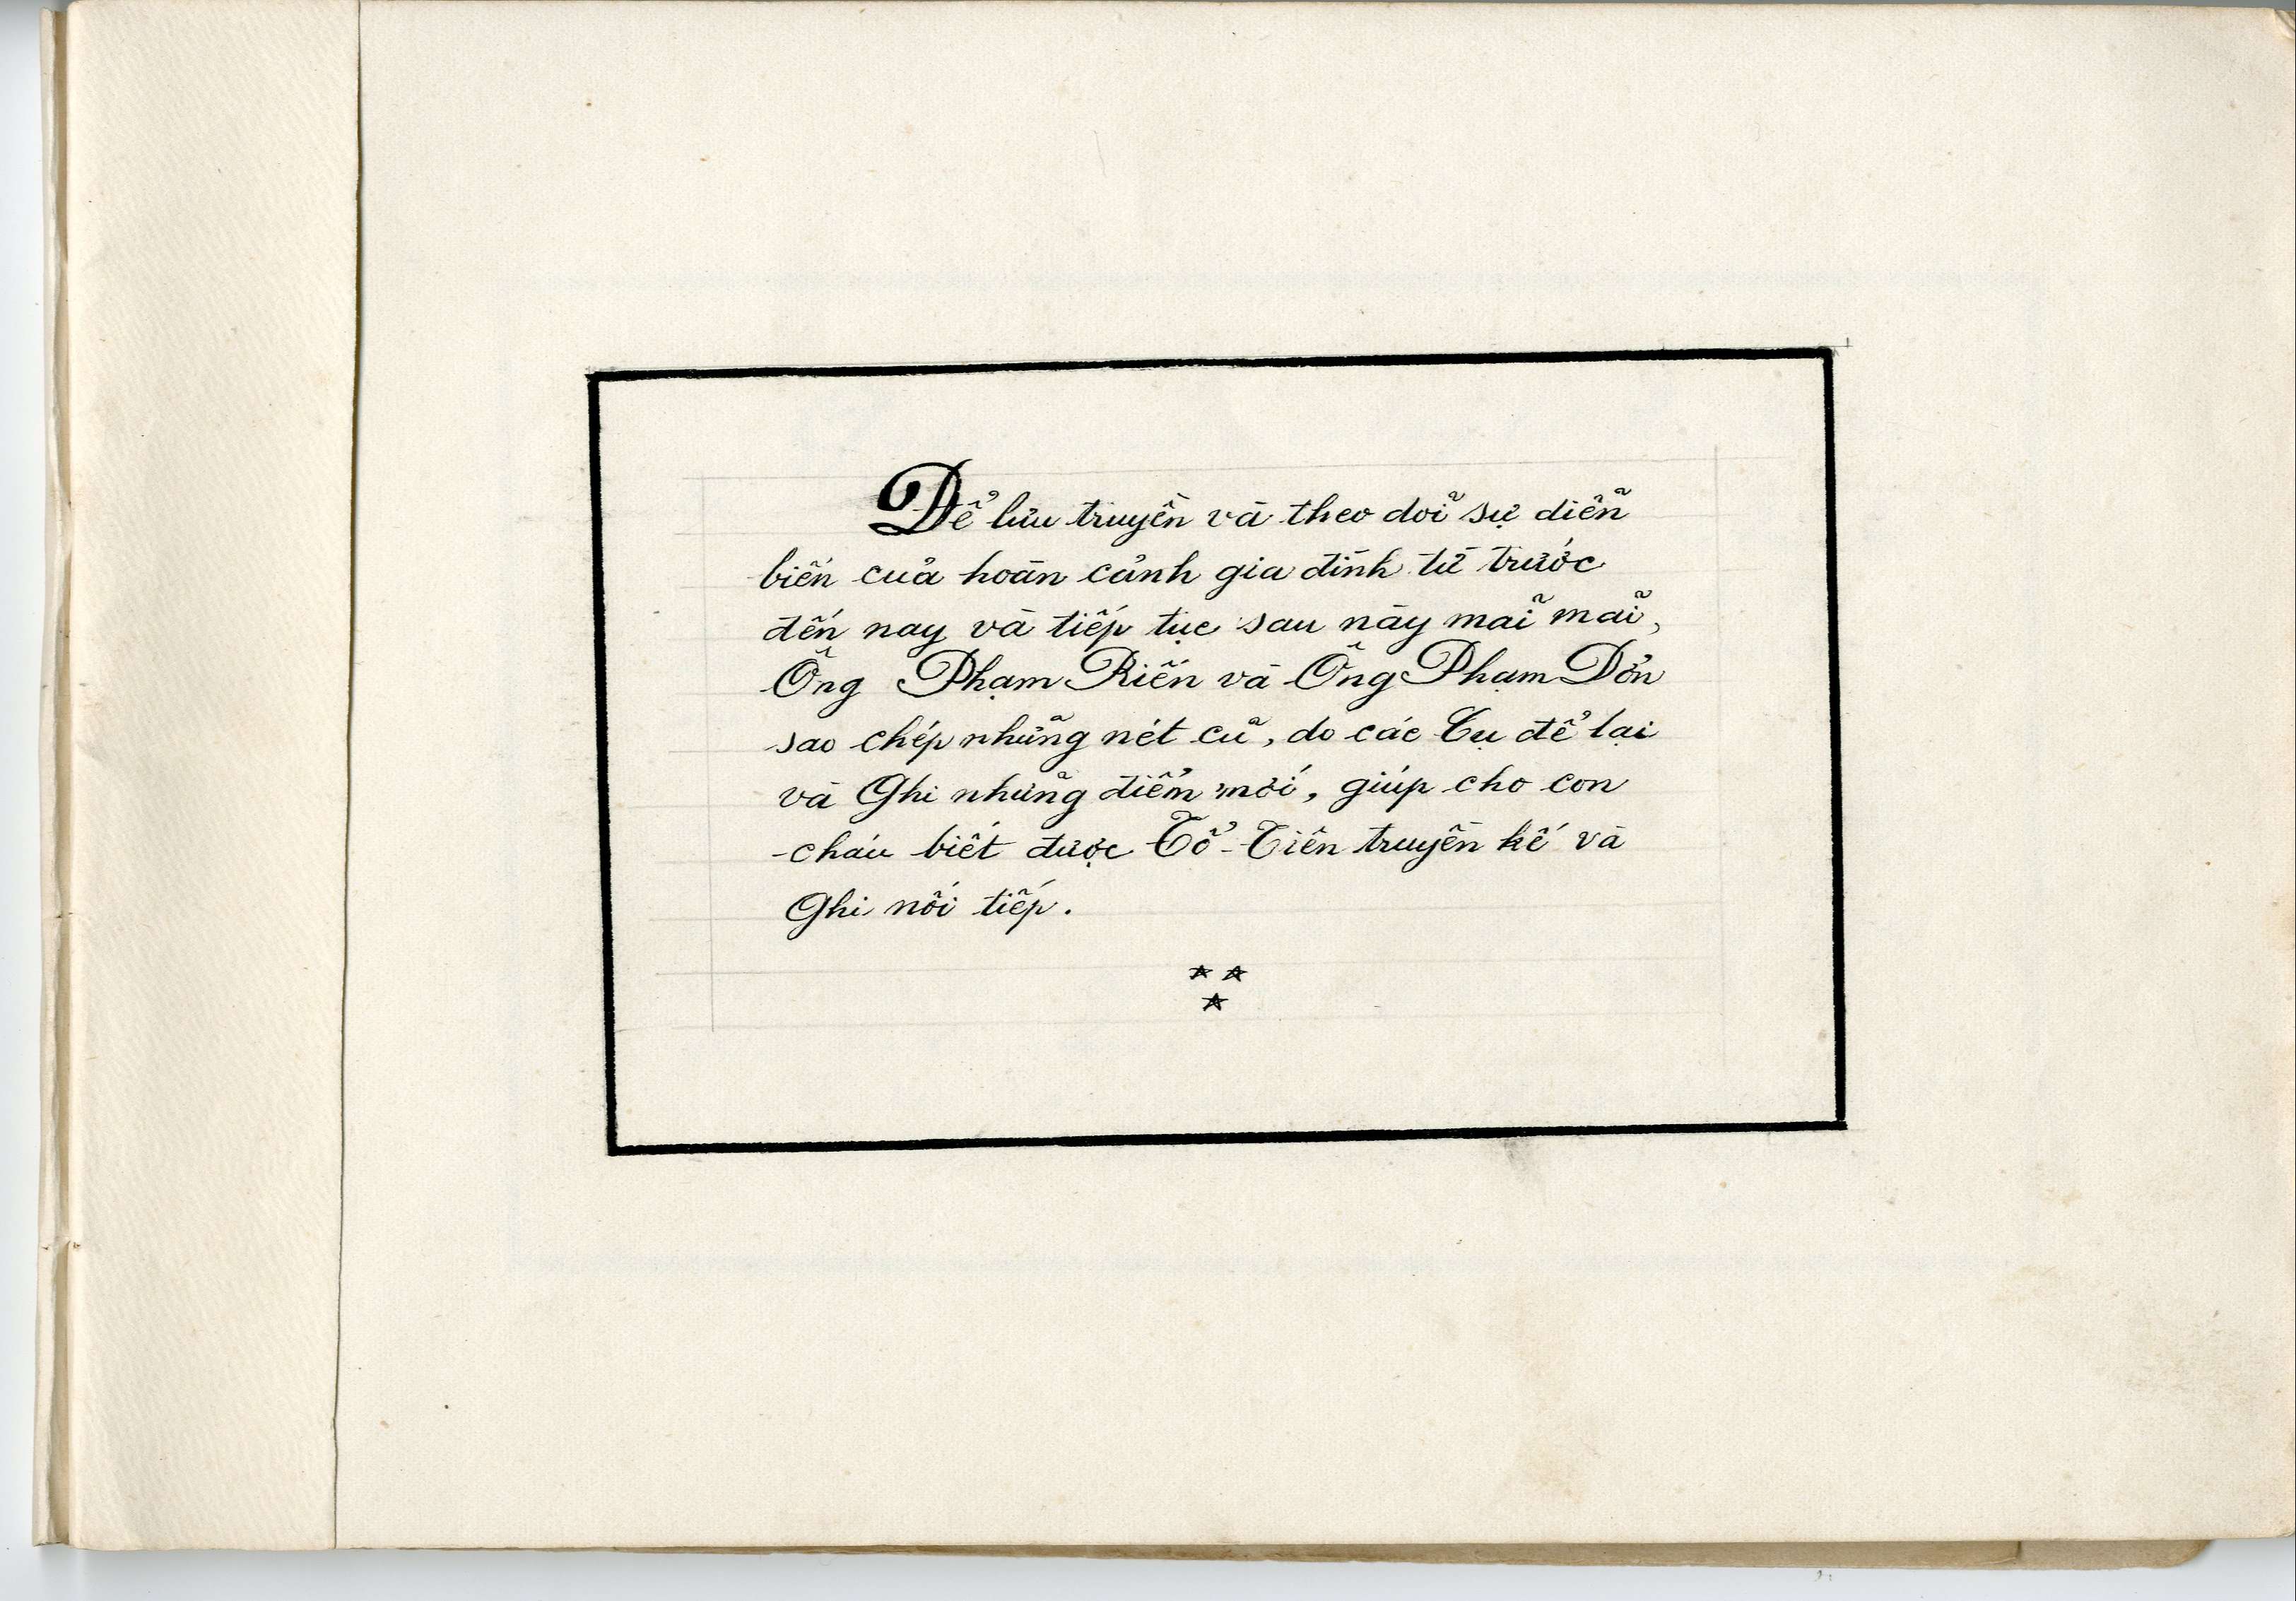 Để lưu truyền và theo dõi sự diễn
biến của hoàn cảnh gia đình từ trước
đến nay và tiếp tục sau này mãi mãi,
Ông Phạm Riến và Ông Phạm Đổn
sao chép những nét cũ, do các Cụ để lại
và Ghi những điểm mới, giúp cho con
cháu biết được Tổ-Tiên truyền kế và
Ghi nối tiếp.